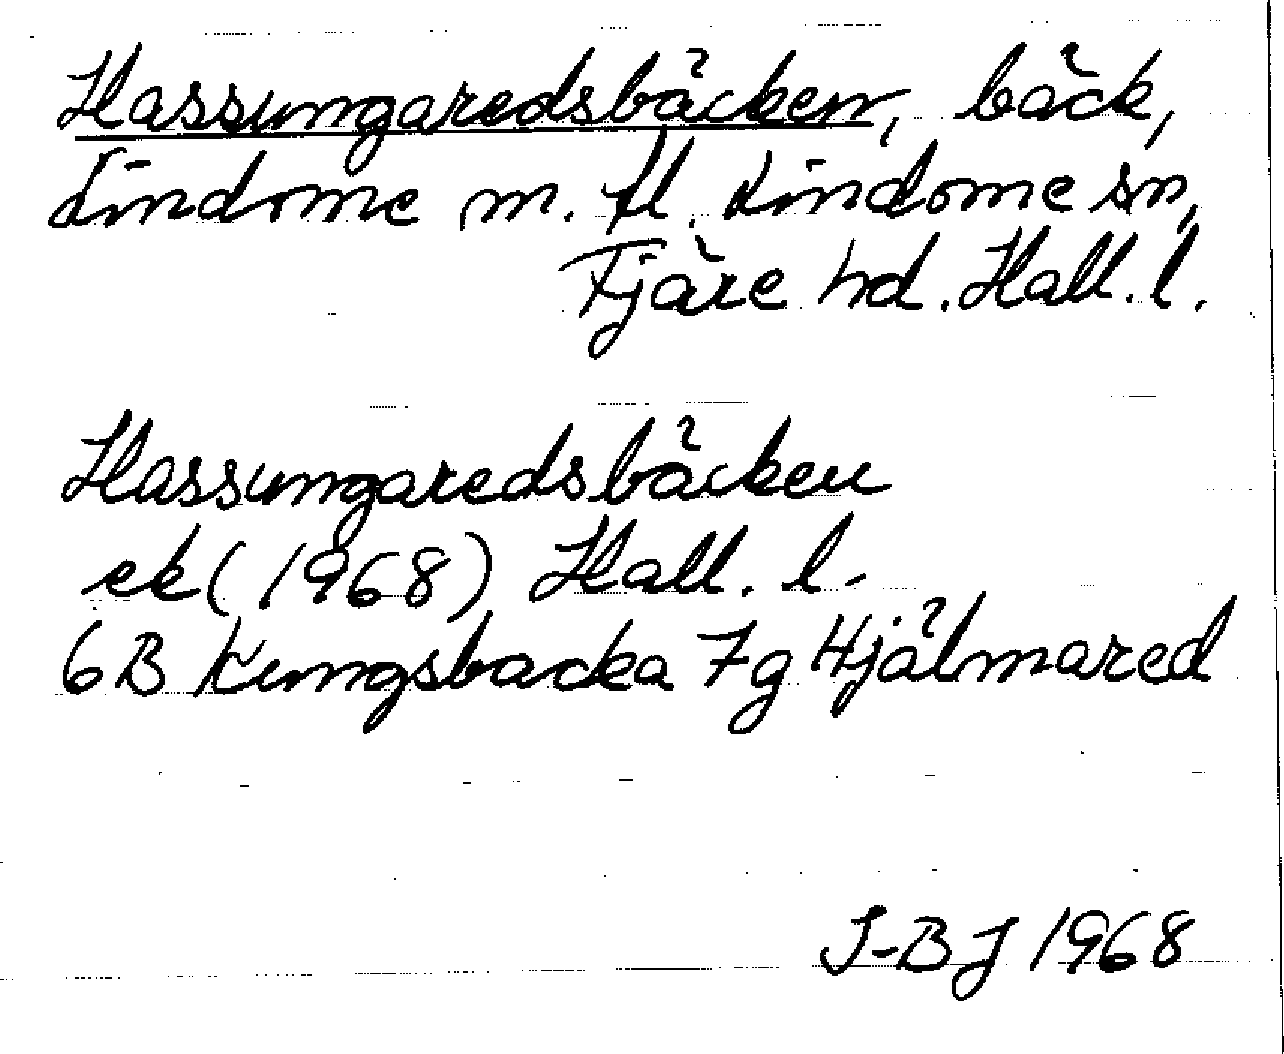 Hassungaredsbäcken, bäck,
Lindome m. fl. Lindome sn,
Fjäre hd. Hall. l.
Hassungaredsbäcken
ek (1968) Hall. l.
6B Kungsbacka 7g Hjälmared
I-BJ 1968